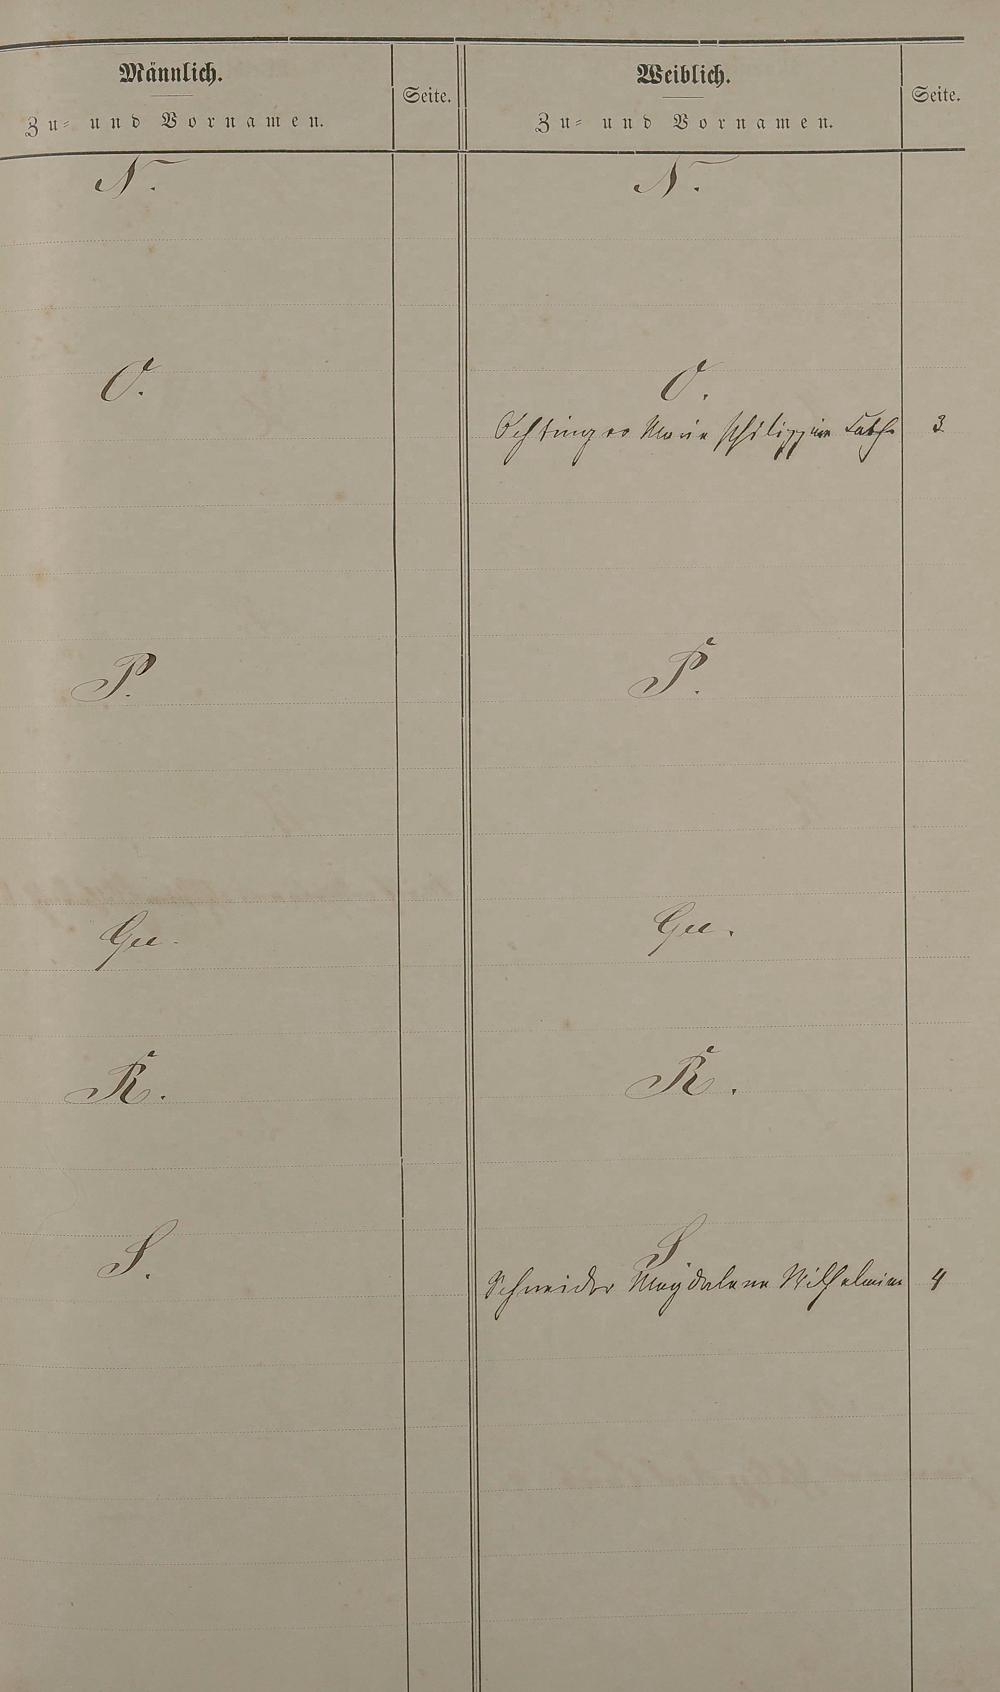 Männlich.
Zu- und Vornamen.
Seite.
Weiblich.
Zu- und Vornamen.
Seite.
N.
N.
O.
O.
Oehtinger Marie Philippine Cath. 3
P.
P.
Qu.
Qu.
R.
R.
S.
S.
Schneider Magdalena Wilhelmine 4